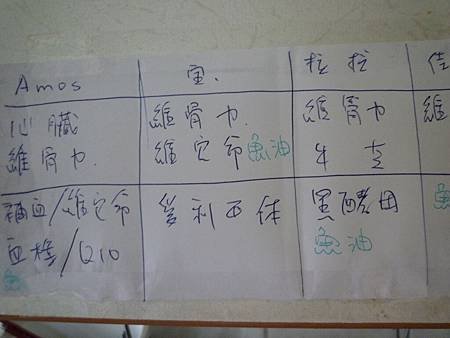 Amos
宝.
拉拉
佳
心臟
維骨力.
維骨力.
維定命 魚油
維骨力
牛支
維
補血/維定命
血栓/Q10
魚
利百体
黑酵母
魚油
魚